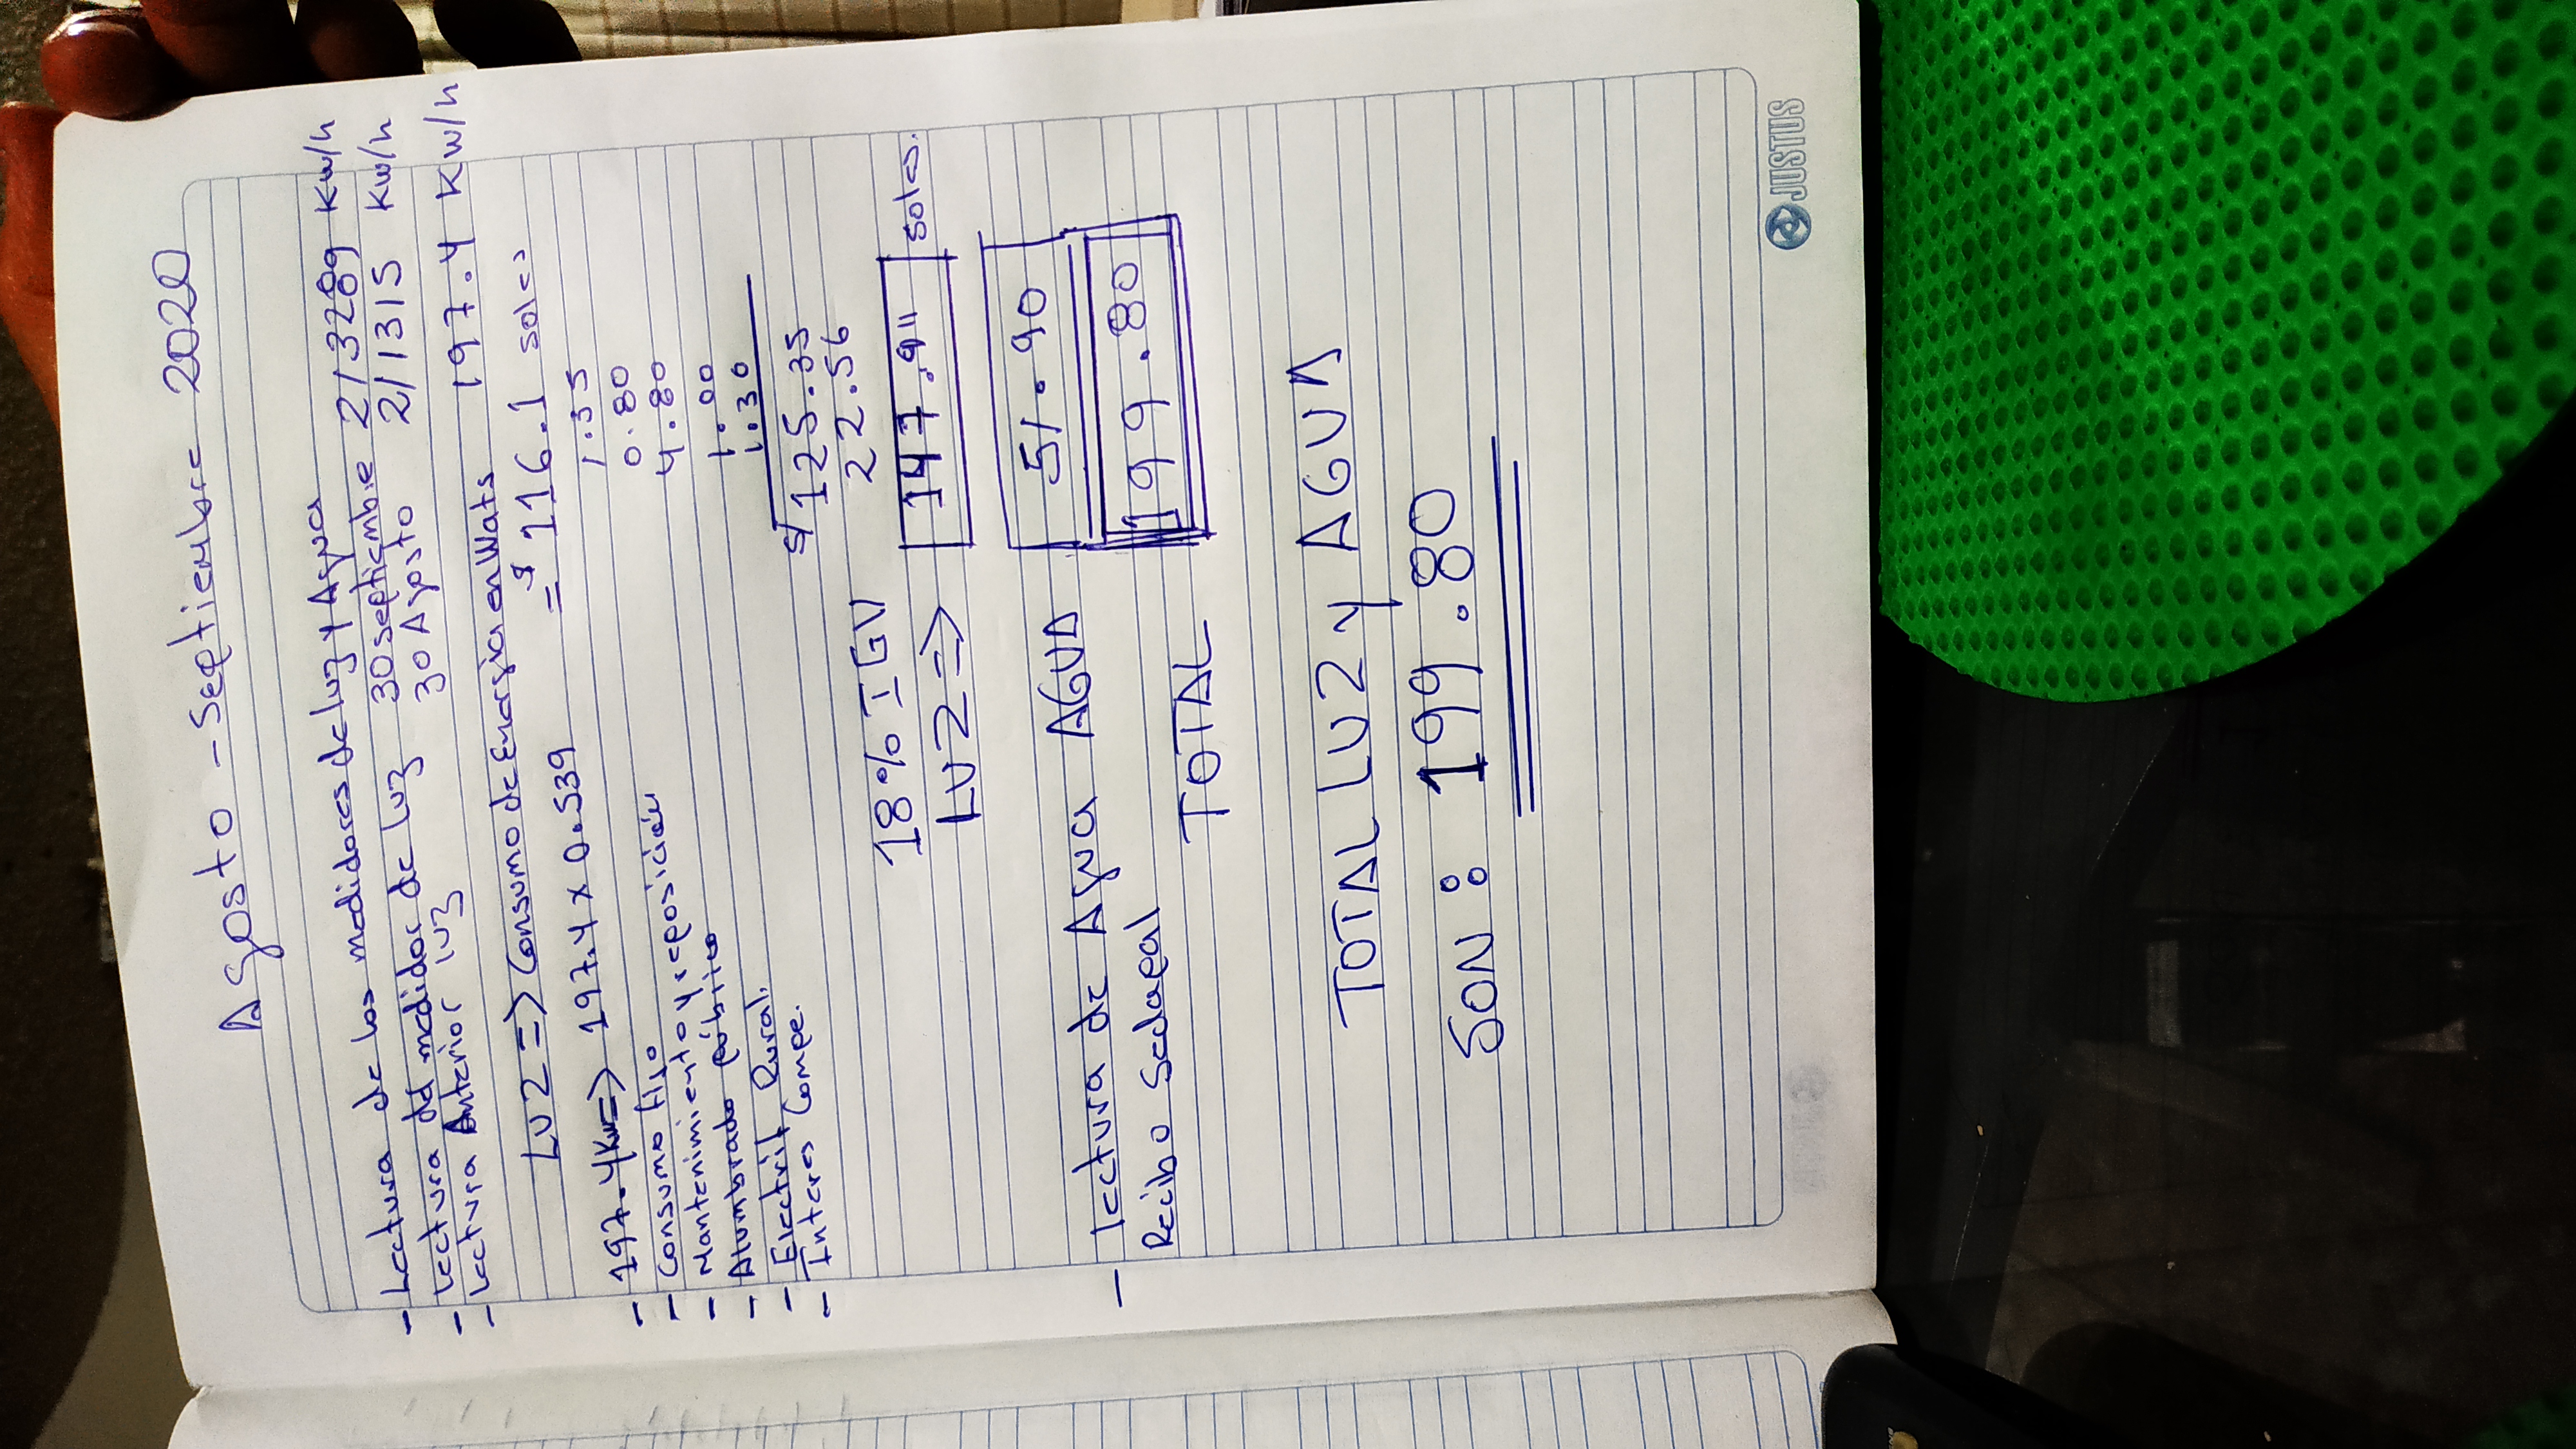 Agosto - Septiembre 2020
- Lectura de los medidores de luz y Agua
- Lectura del medidor de luz 30 septiembre 213289 Kw/h
- Lectura Anterior luz 30 Agosto 211315 Kw/h
LUZ => Consumo de Energia en Wats 197.4 Kw/h
- 197.4Kw=> 197.4 x 0.539 = $ 116.1 soles
- Consumo fijo 1.35
- Mantenimiento y reposición 0.80
- Alumbrado público 4.80
- Electrif. Rural. 1.00
- Interes Compe. 1.30
S/ 125.35
18% IGV 22.56
LUZ => 147.911 soles.
- lectura de Agua AGUA 51.90
Recibo Sedapal
TOTAL 199.80
TOTAL LUZ y AGUA
SON : 199.80
JUSTUS